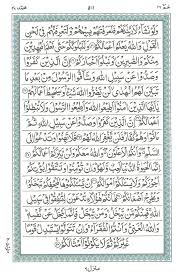 حٰمٓ ٢٦ ٥١١ محمد ٤٧
وَلَوْ نَشَآءُ لَاَرَيْنٰكَهُمْ فَلَعَرَفْتَهُمْ بِسِيْمٰهُمْ ؕ وَلَتَعْرِفَنَّهُمْ فِيْ لَحْنِ
الْقَوْلِ ؕ وَاللّٰهُ يَعْلَمُ اَعْمَالَكُمْ وَلَنَبْلُوَنَّكُمْ حَتّٰى نَعْلَمَ الْمُجٰهِدِيْنَ
مِنْكُمْ وَالصّٰبِرِيْنَ وَنَبْلُوَا۟ اَخْبَارَكُمْ اِنَّ الَّذِيْنَ كَفَرُوْا
وَصَدُّوْا عَنْ سَبِيْلِ اللّٰهِ وَشَآقُّوا الرَّسُوْلَ مِنْۢ بَعْدِ مَا
تَبَيَّنَ لَهُمُ الْهُدٰى لَنْ يَّضُرُّوا اللّٰهَ شَيْئًا ؕ وَسَيُحْبِطُ اَعْمَالَهُمْ
يٰۤاَيُّهَا الَّذِيْنَ اٰمَنُوْۤا اَطِيْعُوا اللّٰهَ وَاَطِيْعُوا الرَّسُوْلَ وَلَا تُبْطِلُوْۤا
اَعْمَالَكُمْ اِنَّ الَّذِيْنَ كَفَرُوْا وَصَدُّوْا عَنْ سَبِيْلِ اللّٰهِ ثُمَّ
مَاتُوْا وَهُمْ كُفَّارٌ فَلَنْ يَّغْفِرَ اللّٰهُ لَهُمْ فَلَا تَهِنُوْا وَتَدْعُوْۤا
اِلَى السَّلْمِ وَاَنْتُمُ الْاَعْلَوْنَ وَاللّٰهُ مَعَكُمْ وَلَنْ يَّتِرَكُمْ اَعْمَالَكُمْ
اِنَّمَا الْحَيٰوةُ الدُّنْيَا لَعِبٌ وَّلَهْوٌ ؕ وَاِنْ تُؤْمِنُوْا وَتَتَّقُوْا يُؤْتِكُمْ
اُجُوْرَكُمْ وَلَا يَسْـَٔلْكُمْ اَمْوَالَكُمْ اِنْ يَّسْـَٔلْكُمُوْهَا فَيُحْفِكُمْ تَبْخَلُوْا
وَيُخْرِجْ اَضْغَانَكُمْ هٰۤاَنْتُمْ هٰٓؤُلَآءِ تُدْعَوْنَ لِتُنْفِقُوْا فِيْ
سَبِيْلِ اللّٰهِ ۚ فَمِنْكُمْ مَّنْ يَّبْخَلُ ۚ وَمَنْ يَّبْخَلْ فَاِنَّمَا يَبْخَلُ عَنْ نَّفْسِهٖ ؕ
وَاللّٰهُ الْغَنِيُّ وَاَنْتُمُ الْفُقَرَآءُ ۚ وَاِنْ تَتَوَلَّوْا يَسْتَبْدِلْ قَوْمًا
غَيْرَكُمْ ۙ ثُمَّ لَا يَكُوْنُوْۤا اَمْثَالَكُمْ